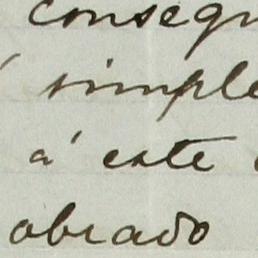 consegu
simple
á este
obrado